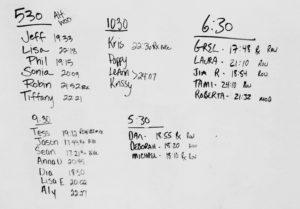 530
Jeff 19:33
Lisa 22:18
Phil 19:15
Sonia 20:09
Robin 21:52
Tiffany 22:21
1030
Kris 22:30
Poppy
Leann >24:07
Krissy
6:30
GRSL - 17:48 Rx RW
LAURA - 21:10 RW
Jim R - 18:54 RW
TAMI - 24:10 RW
ROBERTA - 21:32 MOD
9:30
Tess 19:12
Jason 17:44 Rx
Sean 17:21 Rx
Anna D 20:45
Dia 18:50
Lisa E 20:02
Aly 22:27
5:30
DAN - 18:55 Rx RW
DEBORAH - 18:20
MICHAEL - 18:10 Rx RW